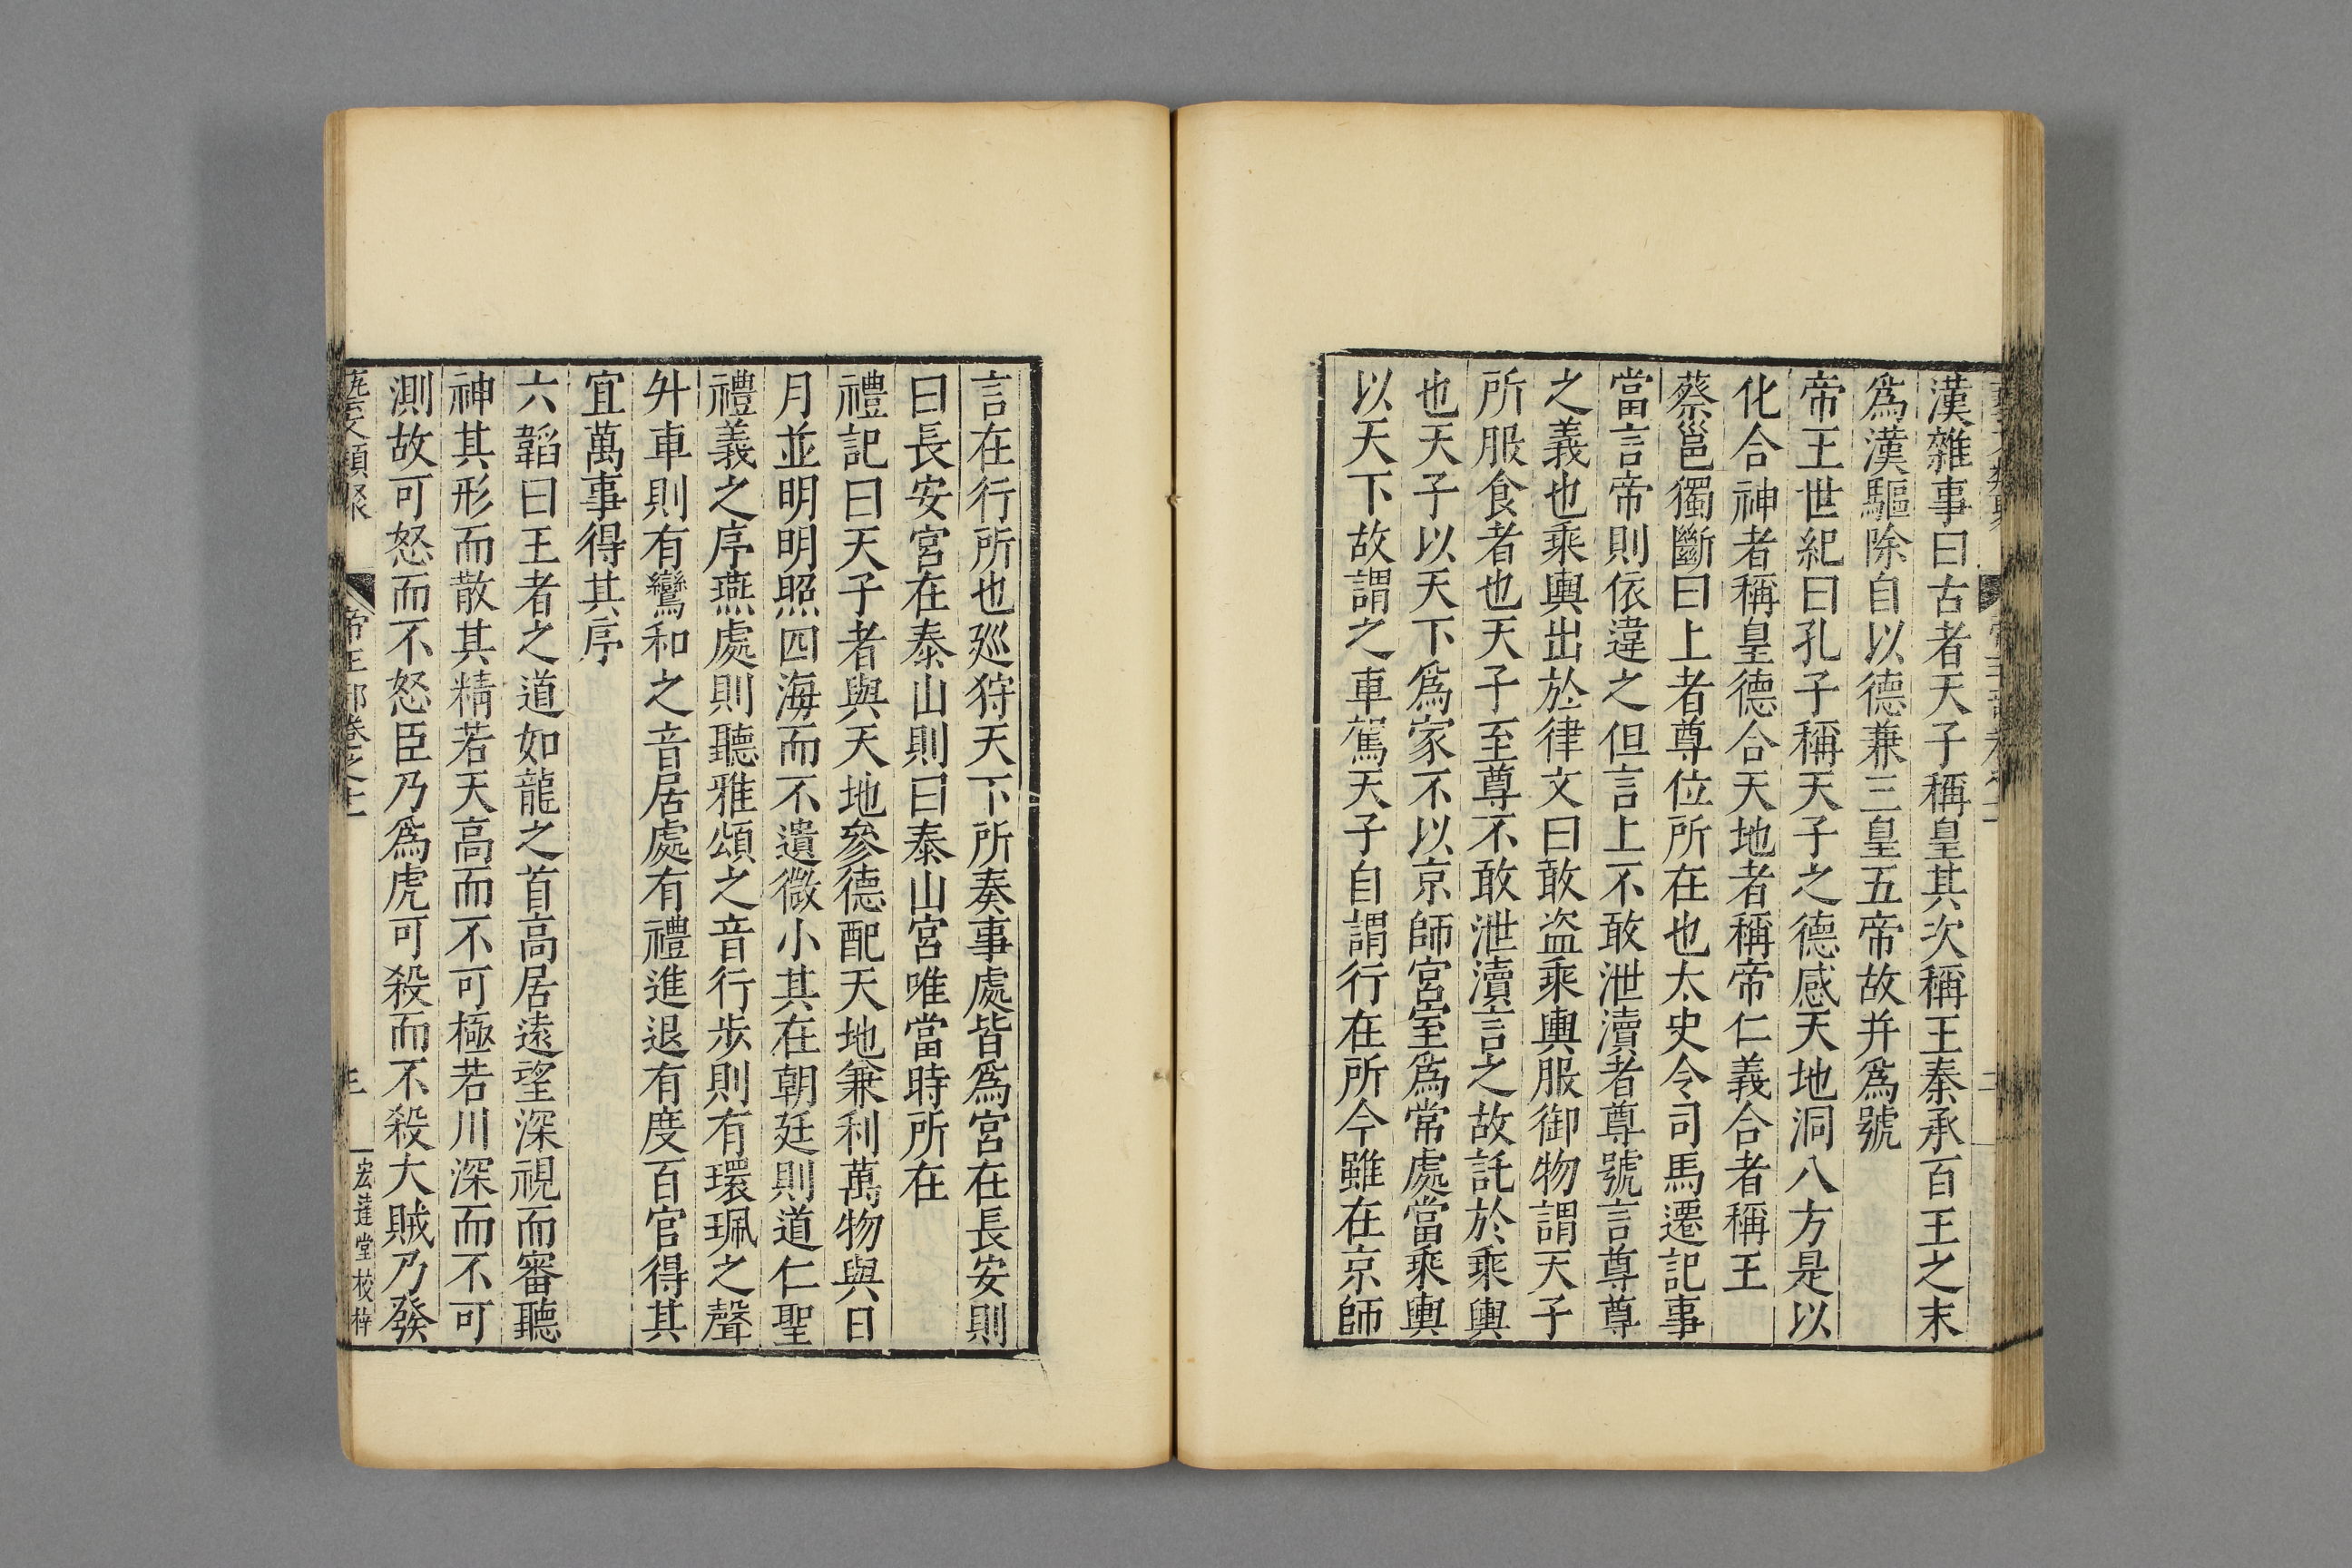 漢雜事曰古者天子稱皇其次稱王秦承百王之末
爲漢驅除自以德兼三皇五帝故并爲號
帝王世紀曰孔子稱天子之德感天地洞八方是以
化合神者稱皇德合天地者稱帝仁義合者稱王
蔡邕獨斷曰上者尊位所在也太史令司馬遷記事
當言帝則依違之但言上不敢泄瀆者尊號言尊尊
之義也乘輿出於律文曰敢盗乘輿服御物謂天子
所服食者也天子至尊不敢泄瀆言之故託於乘輿
也天子以天下爲家不以京師宮室爲常處當乘輿
以天下故謂之車駕天子自謂行在所今雖在京師
言在行所也廵狩天下所奏事處皆爲宮在長安則
曰長安宮在泰山則曰泰山宮唯當時所在
禮記曰天子者與天地參德配天地兼利萬物與日
月並明明照四海而不遺微小其在朝廷則道仁聖
禮義之序燕處則聽雅頌之音行步則有環珮之聲
升車則有鸞和之音居處有禮進退有度百官得其
宜萬事得其序
六韜曰王者之道如龍之首高居遠望深視而審聽
神其形而散其精若天高而不可極若川深而不可
測故可怒而不怒臣乃爲虎可殺而不殺大賊乃發
藝文類聚
帝王部卷之十一
三
宏達堂校梓